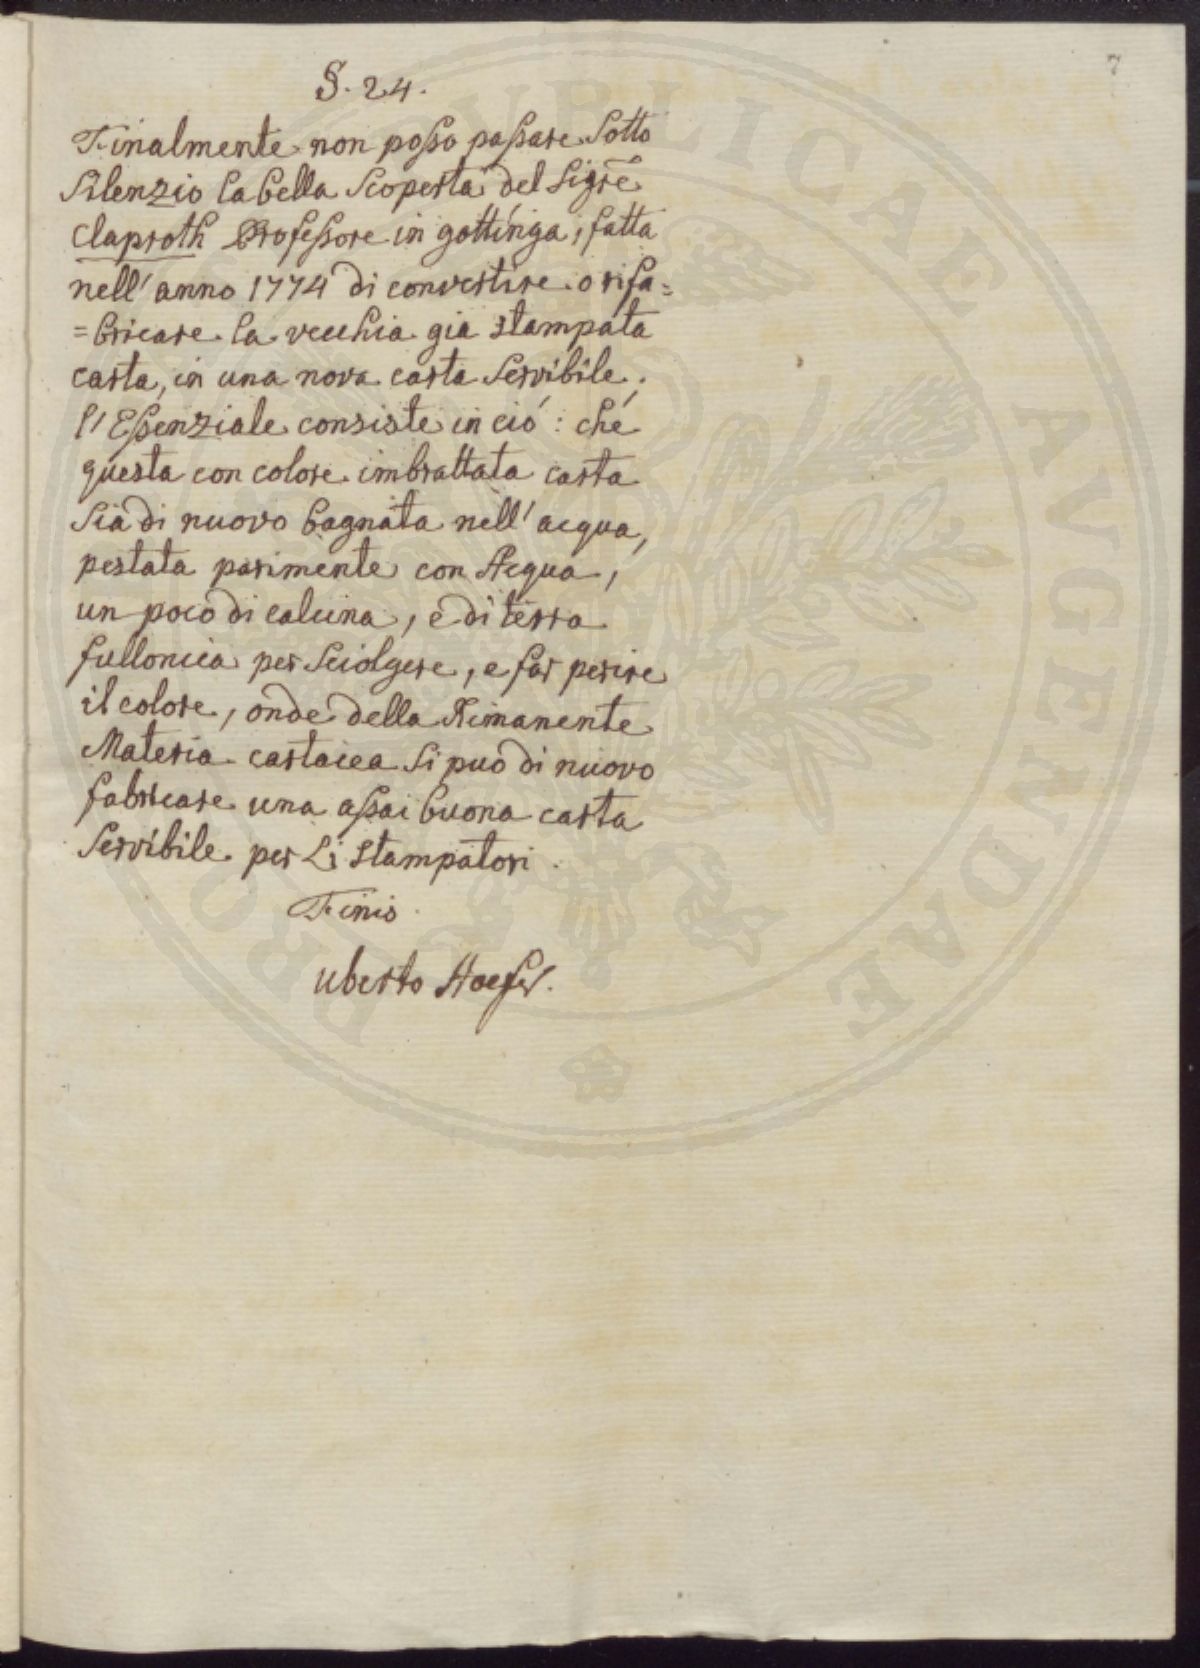 7
§. 24.
Finalmente non posso passare sotto
Silenzio la bella Scoperta del Sigre
Claproth Professore in gottinga, fatta
nell' anno 1774 di convertire o rifa=
=bricare la vecchia gia stampata
carta, in una nova carta Servibile.
l'Essenziale consiste in ció: ché
questa con colore imbrattata carta
Sia di nuovo bagnata nell' acqua,
pestata parimente con Acqua,
un poco di calcina, e di terra
fullonica per Sciolgere, e far perire
il colore, onde della Rimanente
Materia cartacea Si può di nuovo
fabricare una assai buona carta
Servibile per Li Stampatori.
Finis.
Uberto Hoefer.
PRO PUBLICAE AVGENDAE